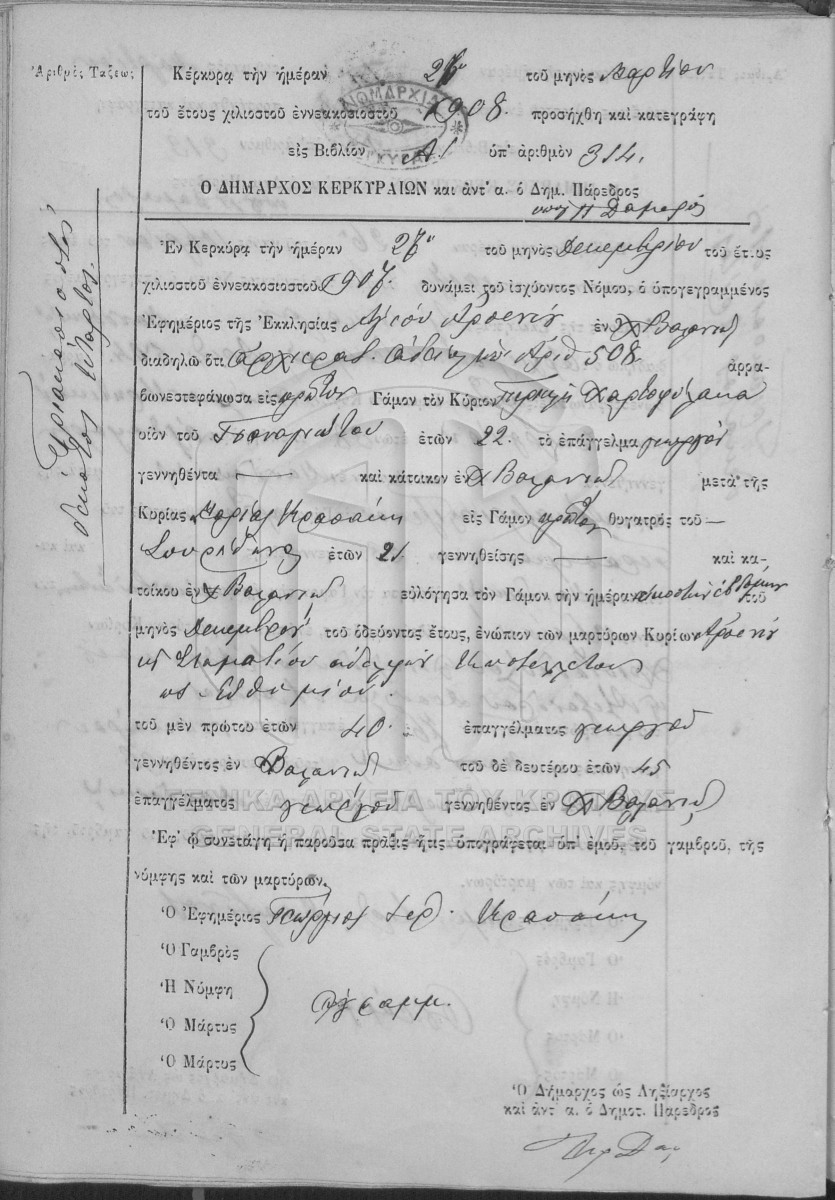 Ἀριθμὸς Τάξεως
Τριακοσιοστὸς δέκατος τέταρτος.
Κέρκυρα τὴν ἡμέραν 26 τοῦ μηνὸς Μαρτίου
τοῦ ἔτους χιλιοστοῦ ἐννεακοσιοστοῦ 1908. προσήχθη καὶ κατεγράφη
εἰς Βιβλίον Α! ὑπ' ἀριθμὸν 314.
Ο ΔΗΜΑΡΧΟΣ ΚΕΡΚΥΡΑΙΩΝ καὶ ἀντ' α. ὁ Δημ. Πάρεδρος
Ἐν Κερκύρᾳ τὴν ἡμέραν 27 τοῦ μηνὸς Δεκεμβρίου τοῦ ἔτους
χιλιοστοῦ ἐννεακοσιοστοῦ 1907. δυνάμει τοῦ ἰσχύοντος Νόμου, ὁ ὑπογεγραμμένος
Ἐφημέριος τῆς Ἐκκλησίας Ἁγίου Ἀρσενίου ἐν Χ Βαλανιὸ
διαδηλῶ ὅτι ἀρχιερατ. ἀδείᾳ ὑπ' Ἀριθ 508. ἀρρα-
βωνεστεφάνωσα εἰς πρῶτον Γάμον τὸν Κύριον Χαρτοφύλακα
υἱὸν τοῦ Παναγιώτου ἐτῶν 22. τὸ ἐπάγγελμα γεωργὸν
γεννηθέντα — καὶ κάτοικον ἐν Χ Βαλανιὸ μετὰ τῆς
Κυρίας Μαρίας Κρασάκη εἰς Γάμον πρῶτον θυγατρὸς τοῦ —
Σπυρίδωνος ἐτῶν 21. γεννηθείσης — καὶ κα-
τοίκου ἐν Χ Βαλανιὸ εὐλόγησα τὸν Γάμον τὴν ἡμέραν εἰκοστὴν ἑβδόμην τοῦ
μηνὸς Δεκεμβρίου τοῦ ὁδεύοντος ἔτους, ἐνώπιον τῶν μαρτύρων Κυρίων Ἀρσενίου
κ Σταματίου ἀδελφῶν
Εὐθυμίου.
τοῦ μὲν πρώτου ἐτῶν 40. ἐπαγγέλματος γεωργοῦ
γεννηθέντος ἐν Βαλανιὸ τοῦ δὲ δευτέρου ἐτῶν 45
ἐπαγγέλματος γεωργοῦ γεννηθέντος ἐν Χ Βαλανιὸ
ΓΕΝΙΚΑ ΑΡΧΕΙΑ ΤΟΥ ΚΡΑΤΟΥΣ
GENERAL STATE ARCHIVES
Ἐφ' ᾧ συνετάγη ἡ παροῦσα πρᾶξις ἥτις ὑπογράφεται ὑπ' ἐμοῦ, τοῦ γαμβροῦ, τῆς
νύμφης καὶ τῶν μαρτύρων.
Ὁ Ἐφημέριος Γεώργιος Ἱερ. Κρασάκης
Ὁ Γαμβρὸς
Ἡ Νύμφη
Ἀγράμμ.
Ὁ Μάρτυς
Ὁ Μάρτυς
Ὁ Δήμαρχος ὡς Ληξίαρχος
καὶ ἀντ' α. ὁ Δημοτ. Πάρεδρος